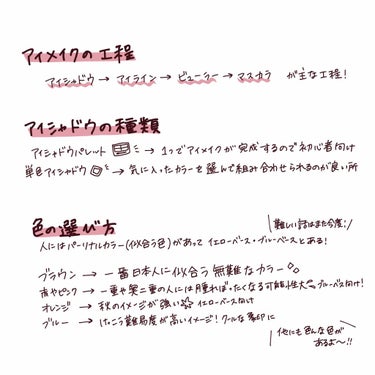 アイメイクの工程
アイシャドウ → アイライン → ビューラー → マスカラ が主な工程!
アイシャドウの種類
アイシャドウパレット → 1つでアイメイクが完成するので初心者向け
単色アイシャドウ → 気に入ったカラーを選んで組み合わせられるのが良い所
色の選び方
\難しい話はまた今度!/
人にはパーソナルカラー(似合う色)があって イエローベース・ブルーベースとある!
ブラウン → 一番日本人に似合う 無難なカラー
赤やピンク → 一重や奥二重の人には腫れぼったくなる可能性大 ブルーベース向け!
オレンジ → 秋のイメージが強い イエローベース向け
ブルー → けっこう難易度が高いイメージ! クールな印象に
\他にも色んな色が
あるよ〜!!/